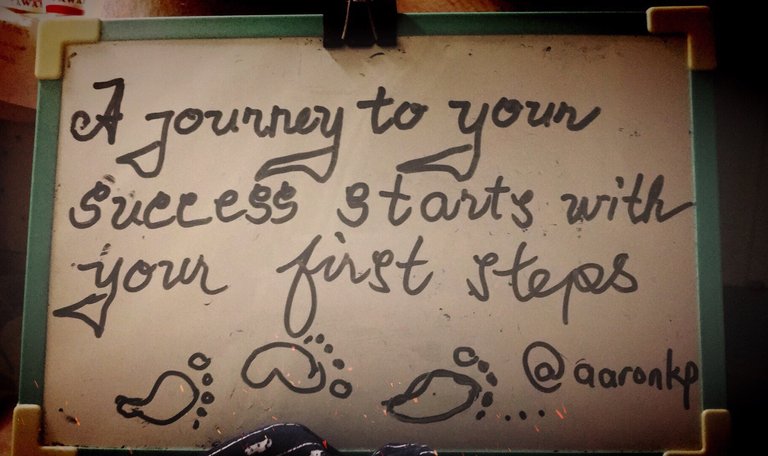 A journey to your
success starts with
your first steps
@aaronkp